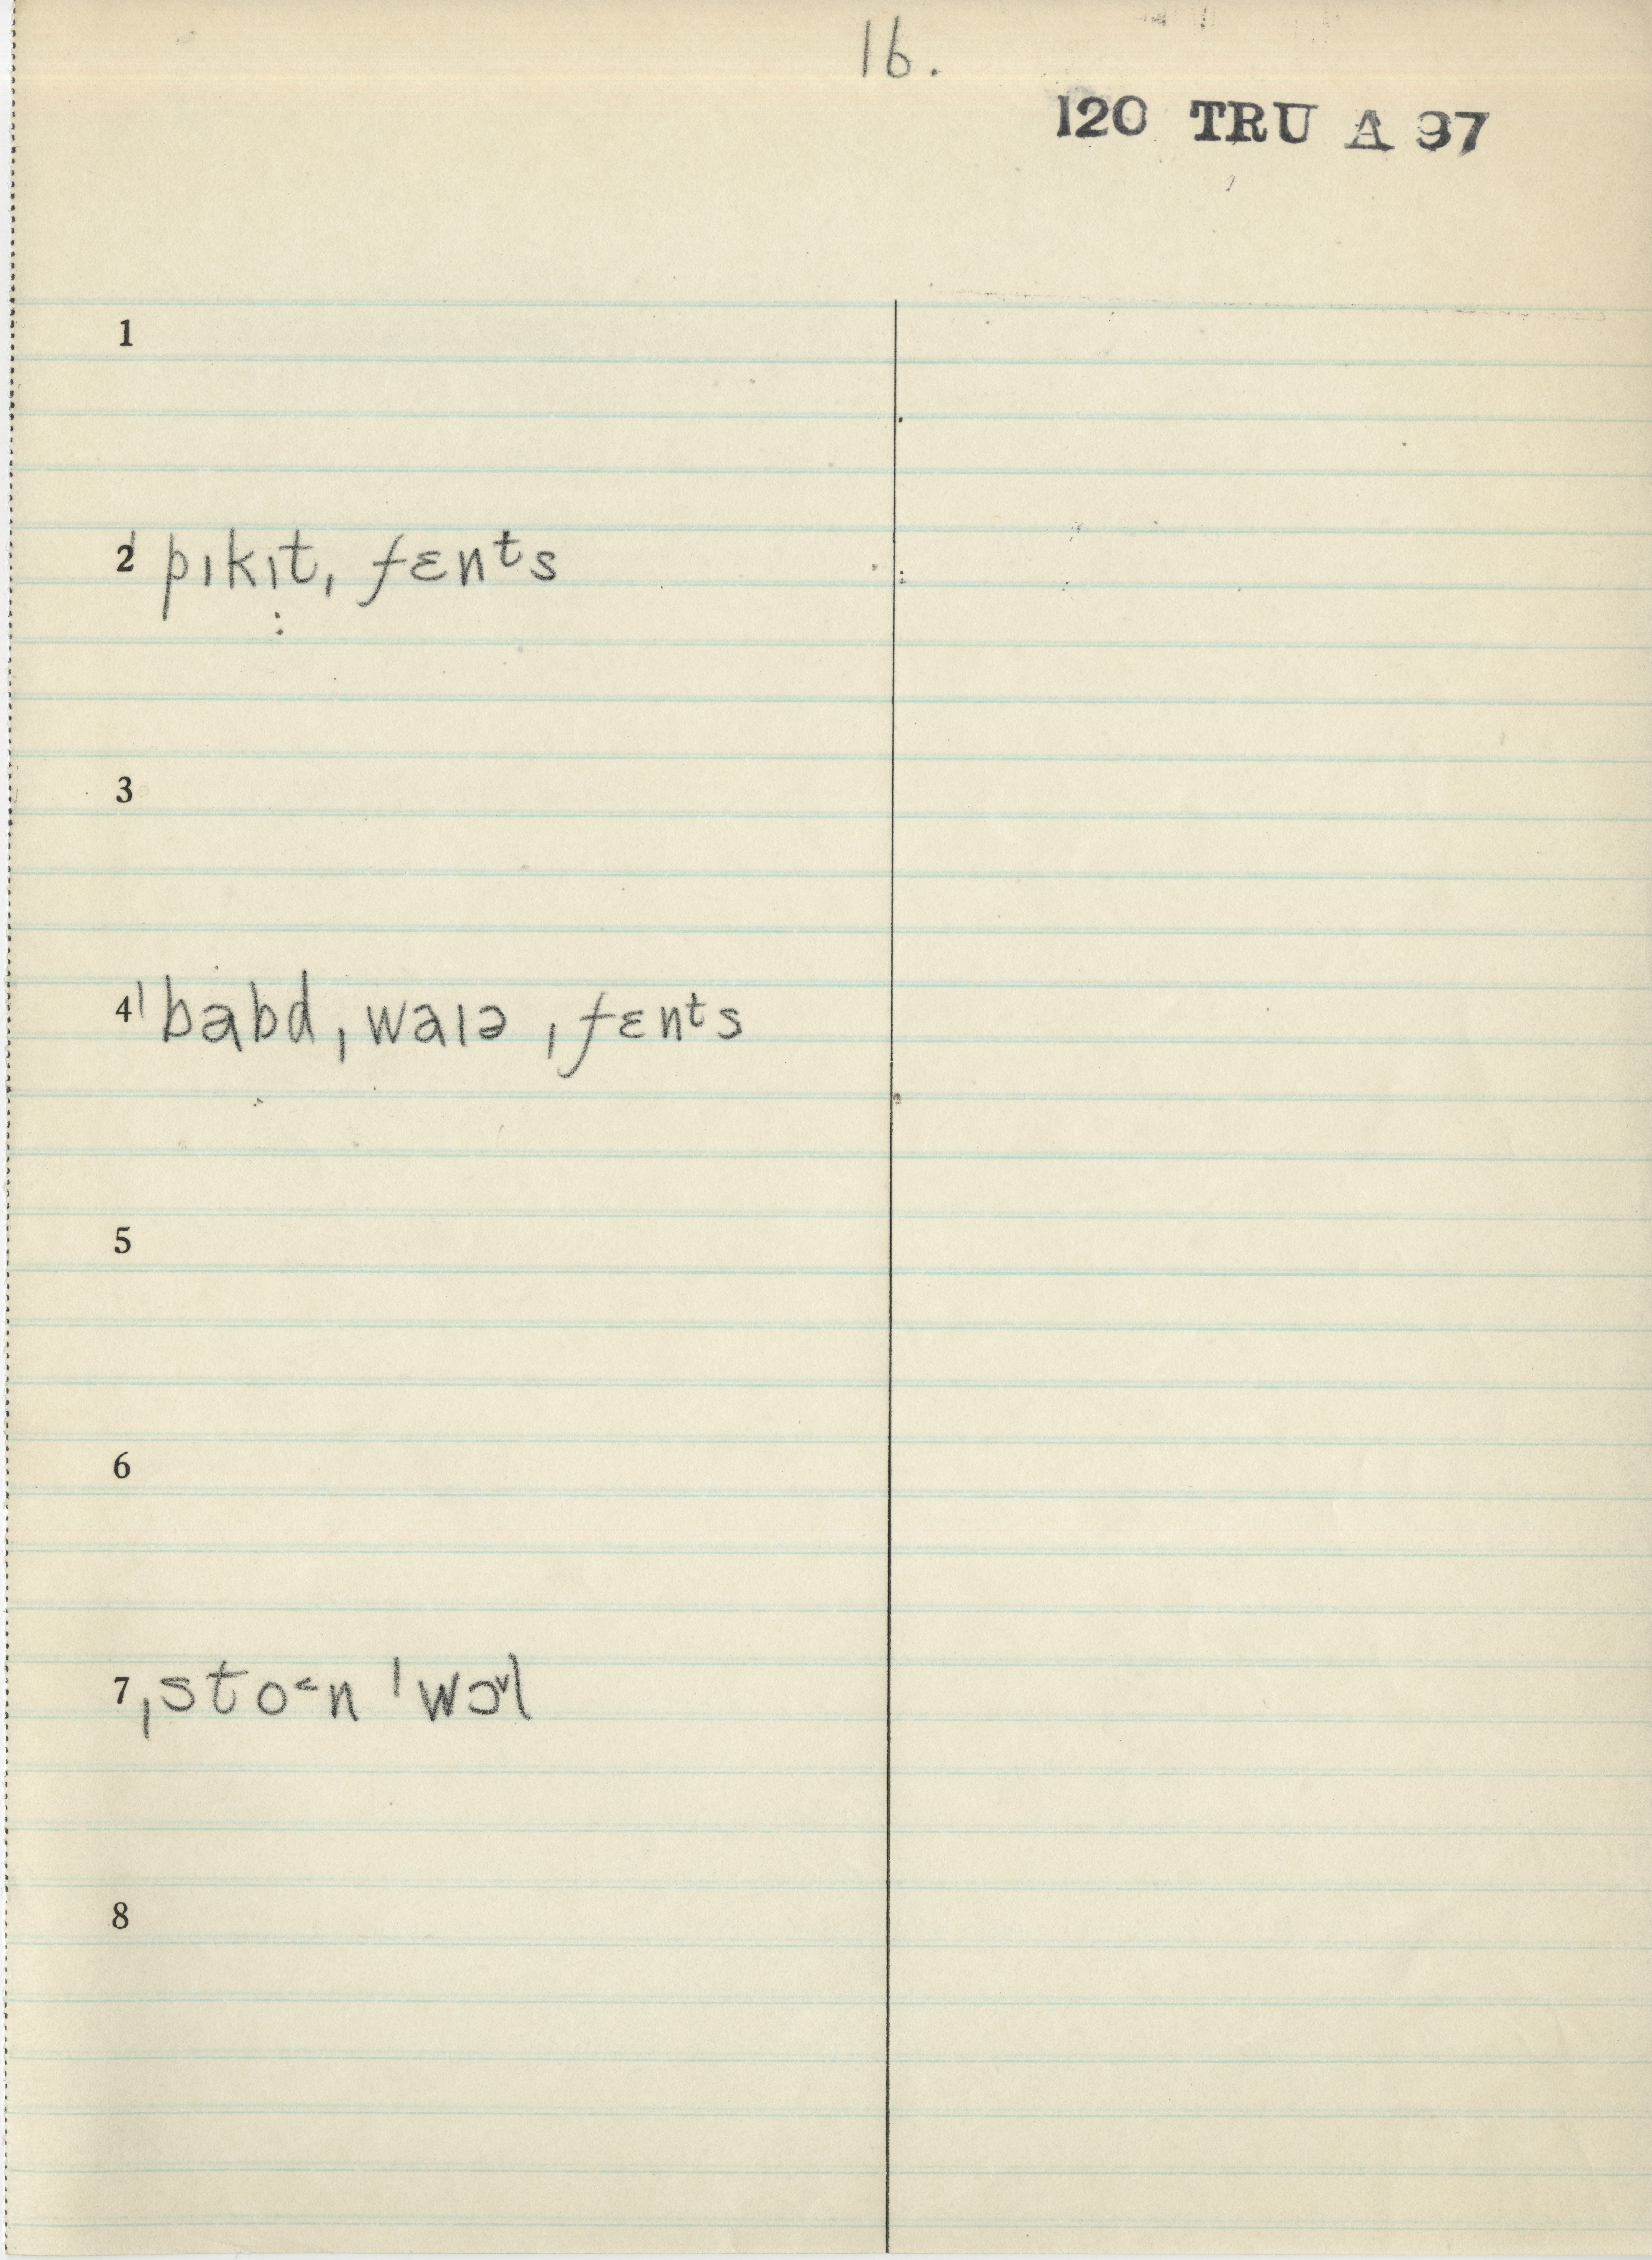 16.
120 TRU A 97
1
2 ˈpɪkɪt ˌfɛnᵗs
3
4 ˈbabd ˌwaɪə ˌfɛnᵗs
5
6
7 ˌsto˂n ˈwɔ˅l
8